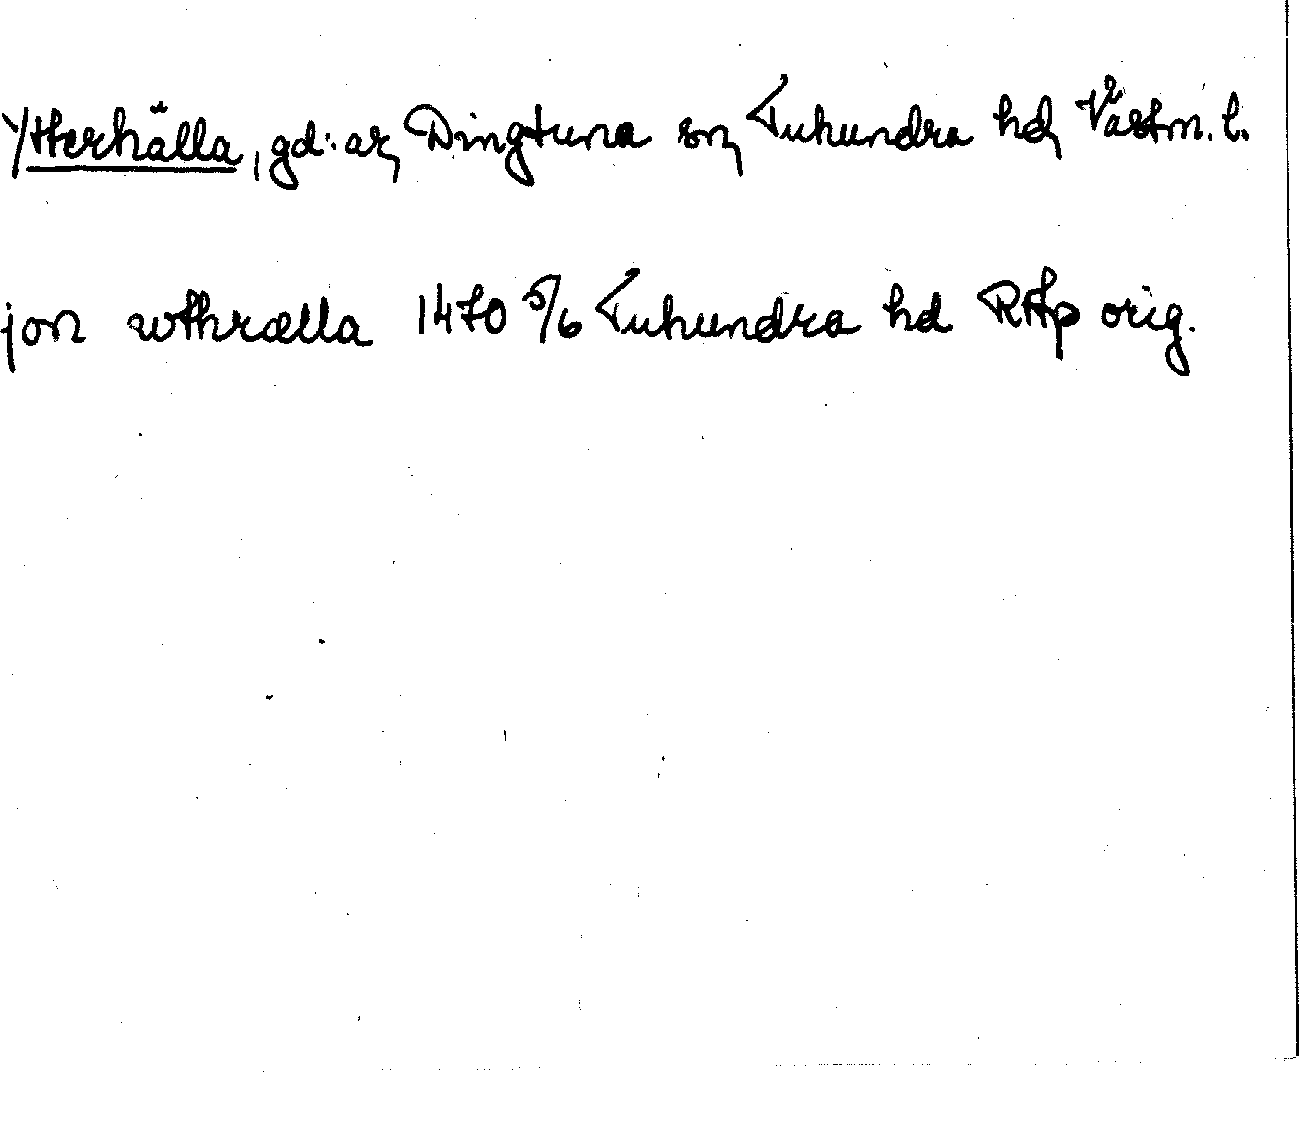 Ytterhälla, gd:ar, Dingtuna sn, Tuhundra hd, Västm. l.
jon wthrælla 1470 5/6 Tuhundra hd RAp orig.